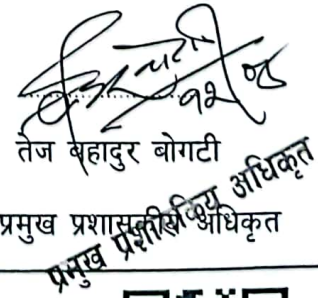 तेज बहादुर बोगटी
प्रमुख प्रशासकीय अधिकृत
प्रमुख प्रशासकिय अधिकृत